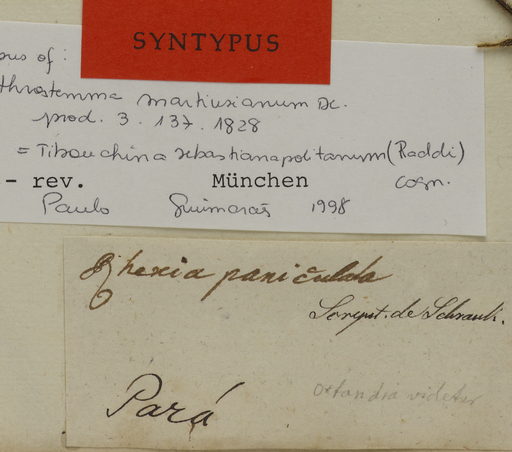 SYNTYPUS
pus of:
throstemma martiusianum DC.
prod. 3. 137. 1828
= Tibouchina sebastianapolitanum (Raddi)
- rev. München Cogn.
Paulo Guimarães 1998
Rhexia paniculata
Script. de Schrank.
Pará
octandra videtur